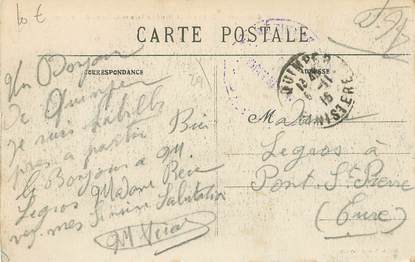 10 €
CARTE POSTALE
CORRESPONDANCE
ADRESSE
QUIMPER
FINISTERE
Un Bonjour
De Quimper
je suis habillé
près a partir Bien
le Bonjour a M.
Legros Madame
mes Sincère Salutation
Madame
Legros à
Pont St Pierre
(Eure)